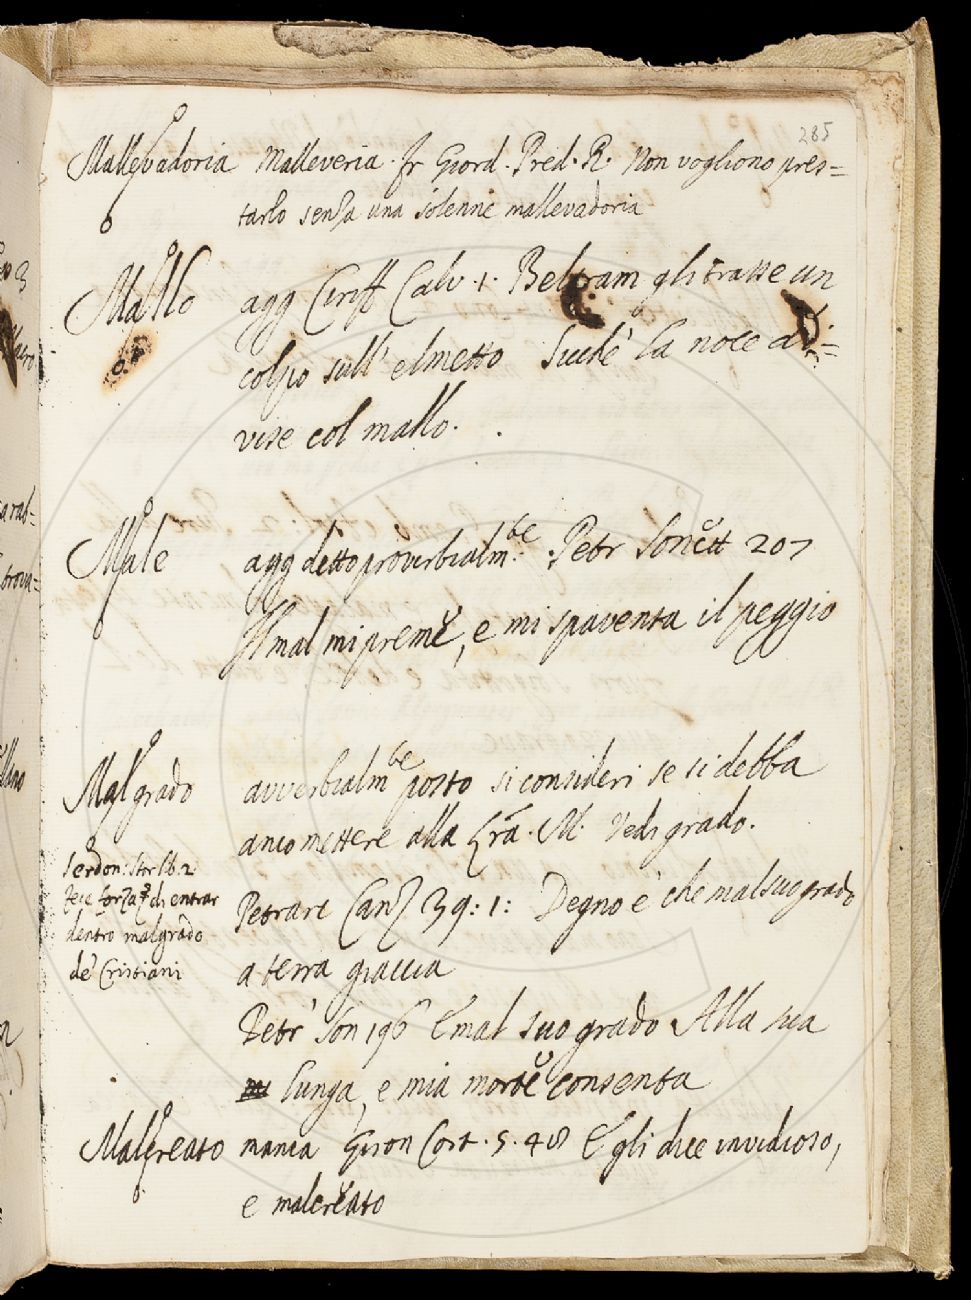 285
Mallevadoria Malleveria. fr Giord. Pred. R. Non vogliono pres=
tarlo senza una solenne mallevadoria
Mallo agg Ciriff Calv. 1. Beltram gli trasse un
colpo sull' elmetto Succhè la noce a di=
vise col mallo.
Male agg detto proverbialm:te. Petr Sonett 207
Il mal mi preme, e mi spaventa il peggio
Malgrado avverbialmte posto si consideri se si debba
anco mettere alla Lra. M. Vedi grado.
Serdon: Stor lib. 2
fece forza di entrar
dentro malgrado
de' Cristiani
Petrarc Canz 39: 1: Degno è che mal suo grado
a terra giaccia
Petr Son 196 E mal suo grado Alla sua
lunga, e mia morte consenta
Malcreato manca Giron Cort. 5. 48 Egli dice invidioso,
e malcreato